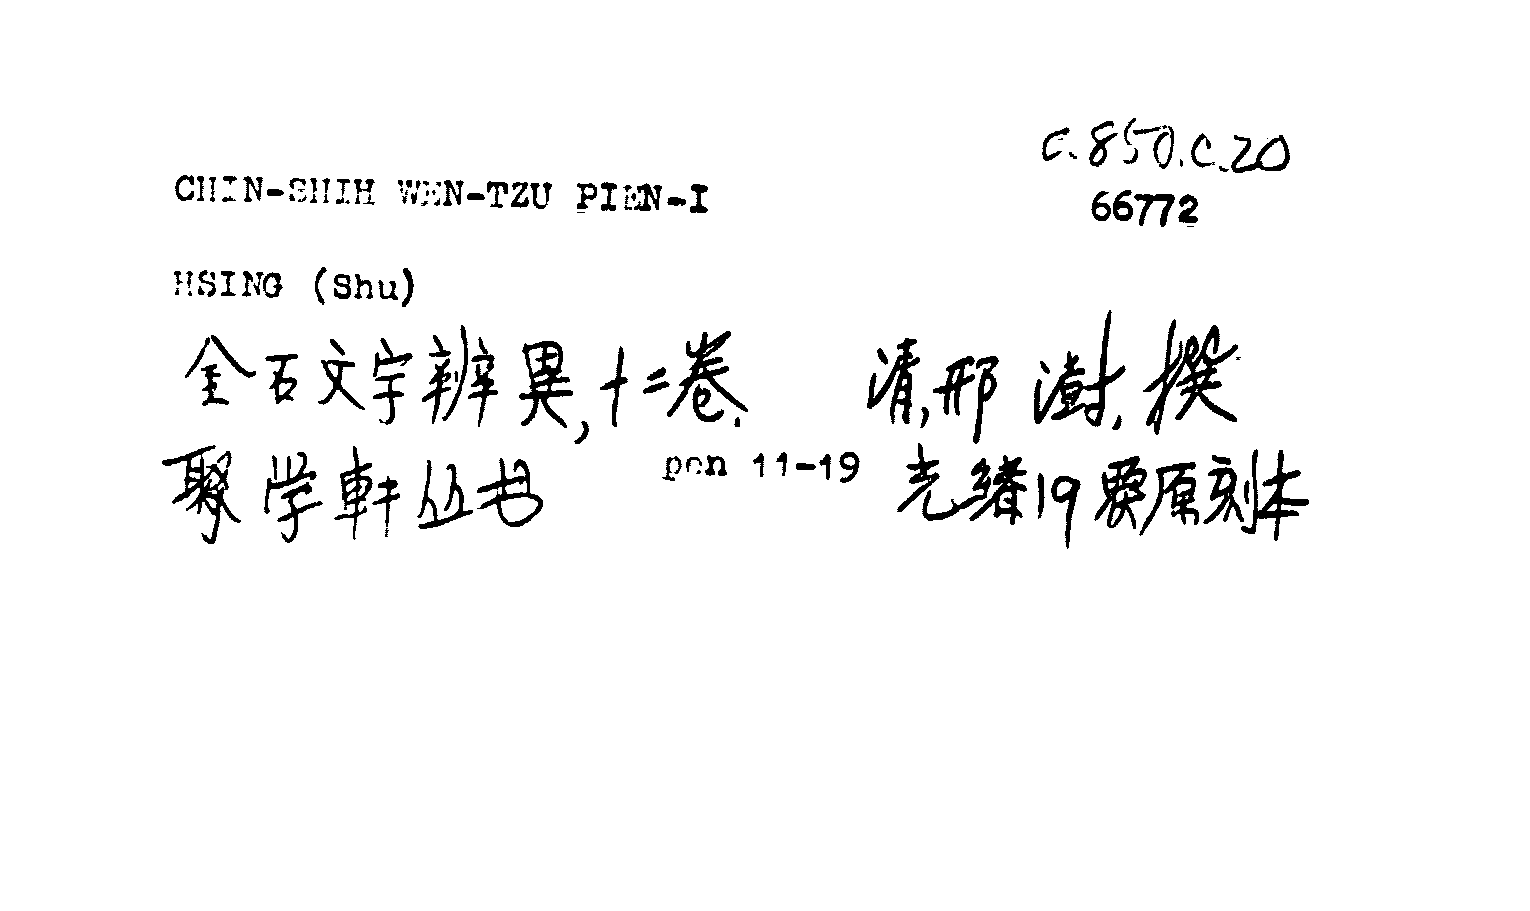 c.850.c.20
CHIN-SHIH WEN-TZU PIEN-I
66772
HSING (Shu)
金石文字辨異,十二卷. 清,邢澍,撰
聚学軒丛书 pen 11-19 光緒19要原刻本